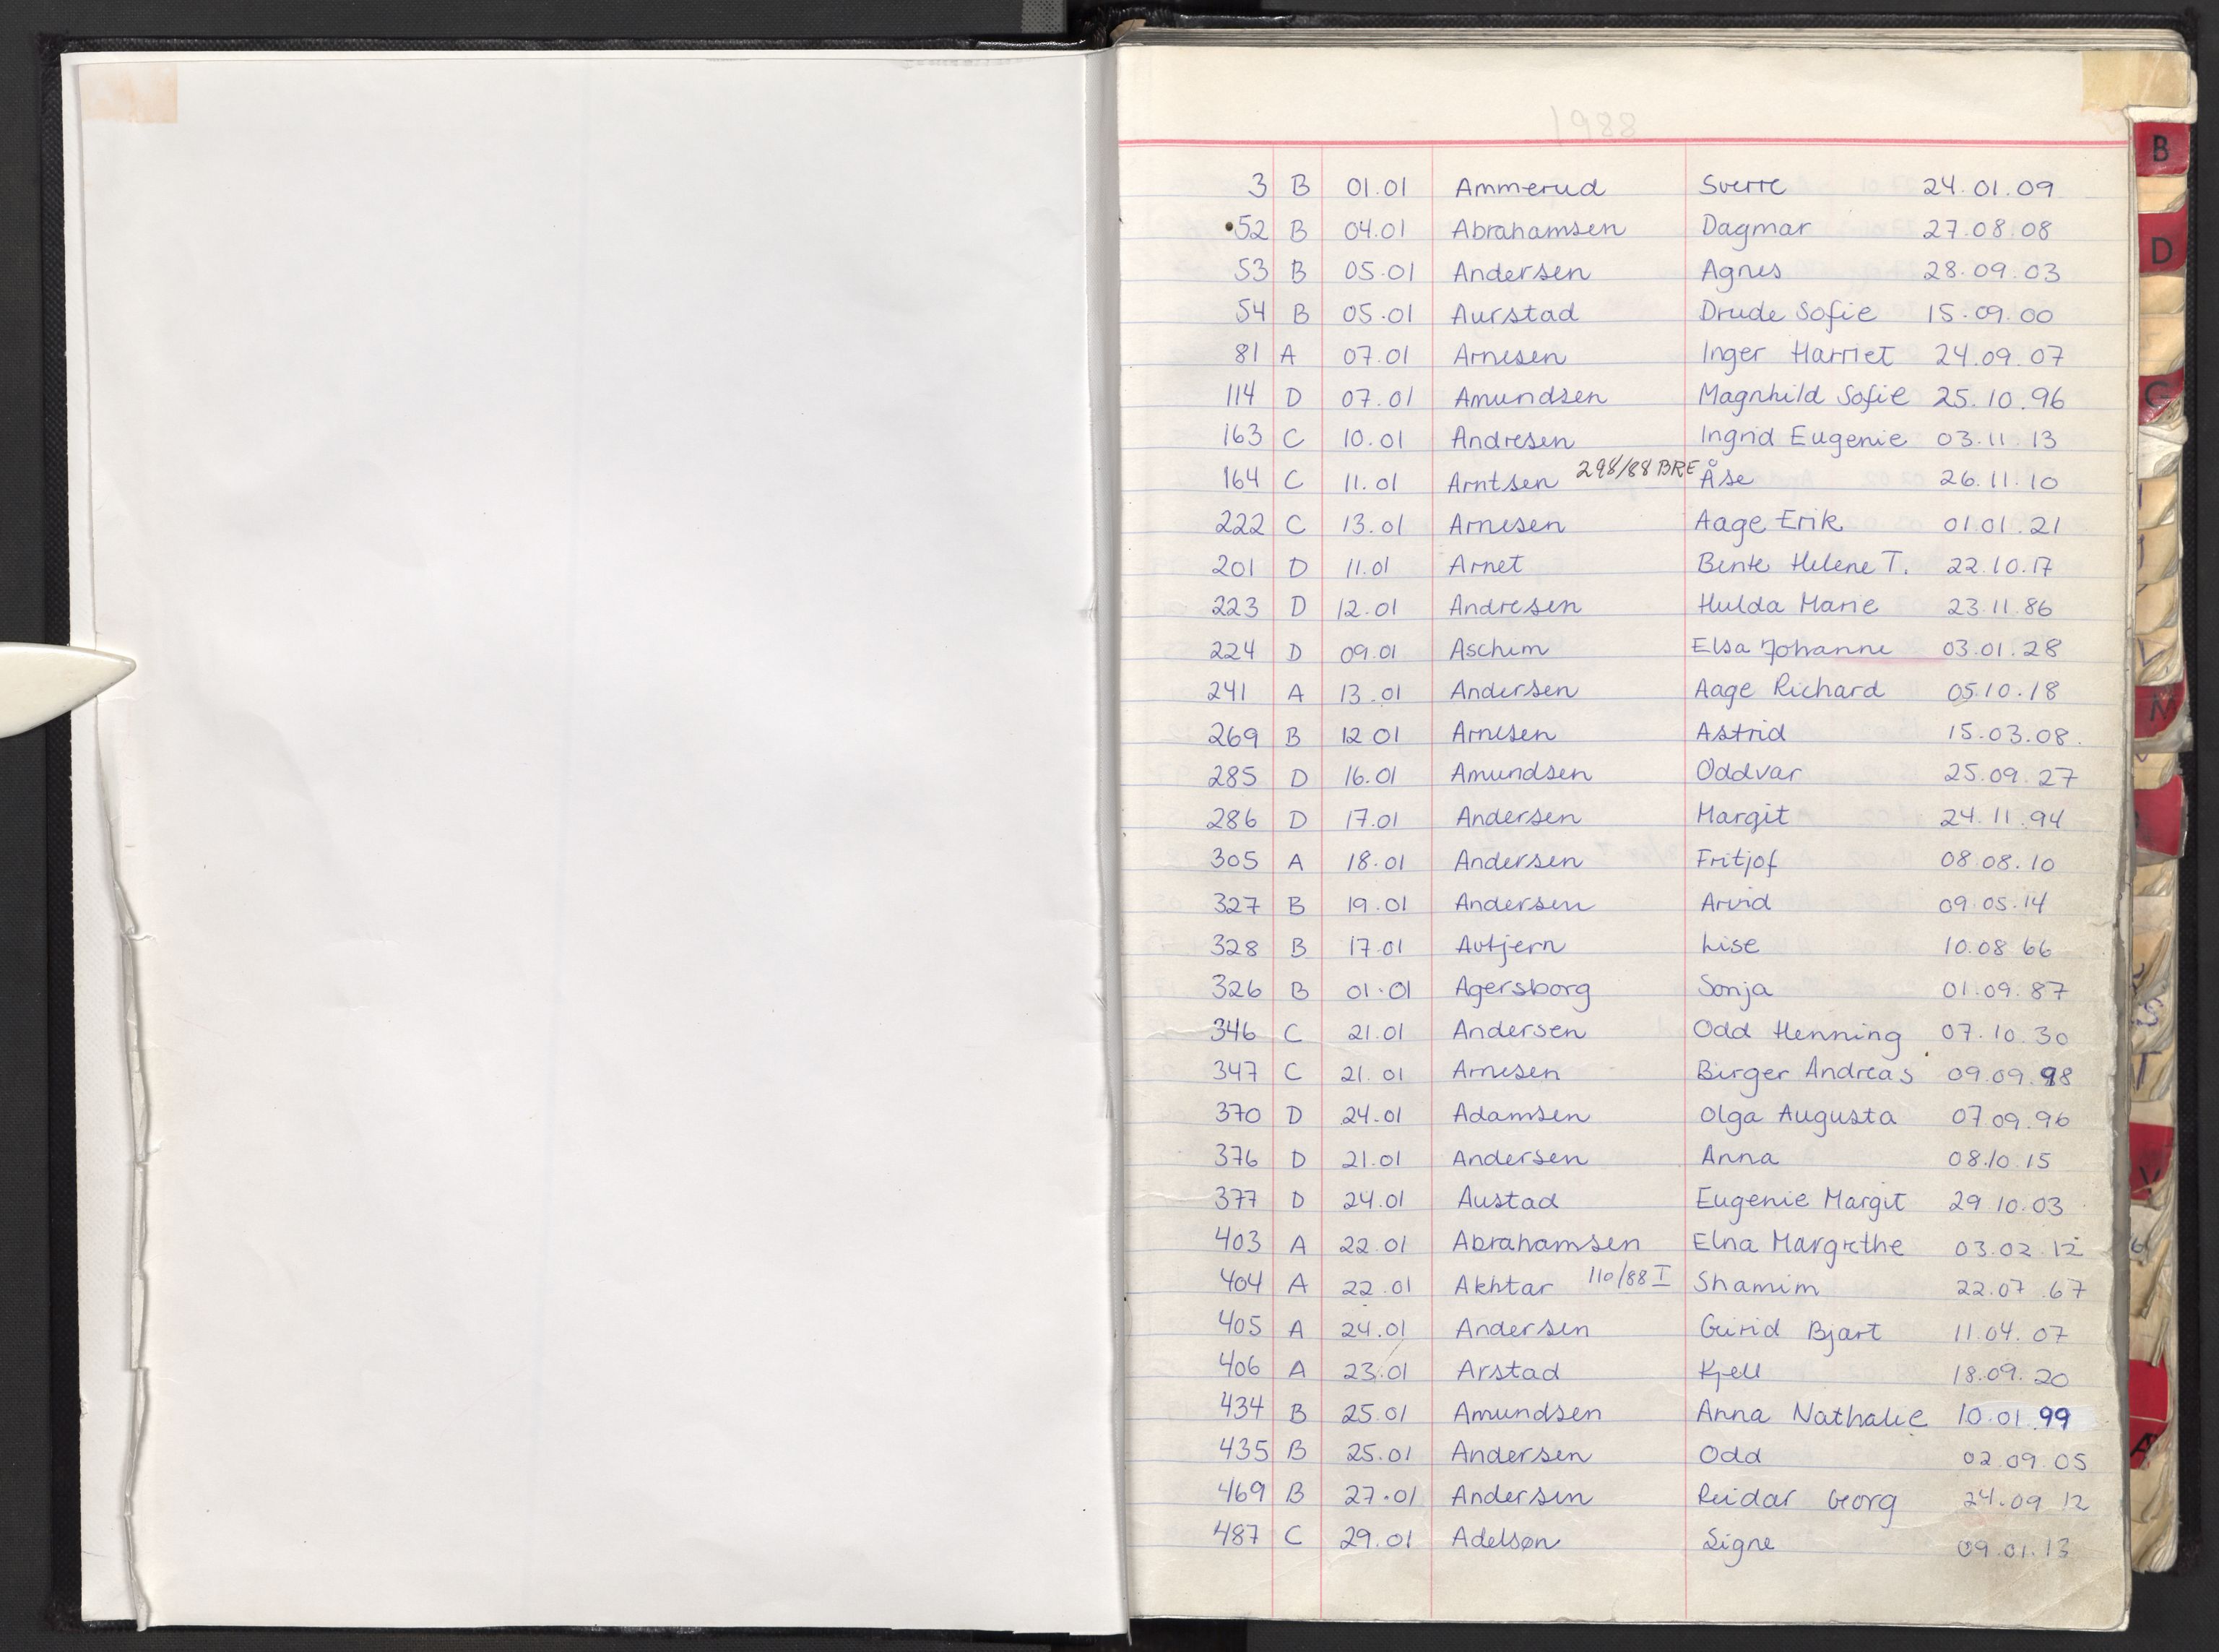 1988
3 B 01.01 Ammerud Sverre 24.01.09
52 B 04.01 Abrahamsen Dagmar 27.08.08
53 B 05.01 Andersen Agnes 28.09.03
54 B 05.01 Aurstad Drude Sofie 15.09.00
81 A 07.01 Arnesen Inger Harriet 24.09.07
114 D 07.01 Amundsen Magnhild Sofie 25.10.96
163 C 10.01 Andresen Ingrid Eugenie 03.11.13
164 C 11.01 Arntsen 298/88 BRE Åse 26.11.10
222 C 13.01 Arnesen Aage Erik 01.01.21
201 D 11.01 Arnet Bente Helene T. 22.10.17
223 D 12.01 Andresen Hulda Marie 23.11.86
224 D 09.01 Aschim Elsa Johanne 03.01.28
241 A 13.01 Andersen Aage Richard 05.10.18
269 B 12 01 Arnesen Astrid 15.03.08.
285 D 16.01 Amundsen Oddvar 25.09.27
286 D 17.01 Andersen Margit 24.11.94
305 A 18.01 Andersen Fritjof 08.08.10
327 B 19.01 Andersen Arvid 09.05.14
328 B 17.01 Avtjern Lise 10.08 66
326 B 01.01 Agersborg Sonja 01.09.87
346 C 21.01 Andersen Odd Henning 07.10.30
347 C 21.01 Arnesen Birger Andreas 09.09.98
370 D 24.01 Adamsen Olga Augusta 07 09.96
376 D 21.01 Andersen Anna 08.10.15
377 D 24.01 Austad Eugenie Margit 29.10.03
403 A 22.01 Abrahamsen Elna Margrethe 03.02.12
404 A 22.01 Akhtar 110/88 I Shamim 22.07.67
405 A 24.01 Andersen Guirid Bjart 11.04.07
406 A 23.01 Arstad Kjell 18.09.20
434 B 25.01 Amundsen Anna Nathalie 10.01.99
435 B 25.01 Andersen Odd 02.09.05
469 B 27.01 Andersen Reidar Georg 24.09 12
487 C 29.01 Adelsøn Signe 09.01.13
B
D
G
M
S
T
V